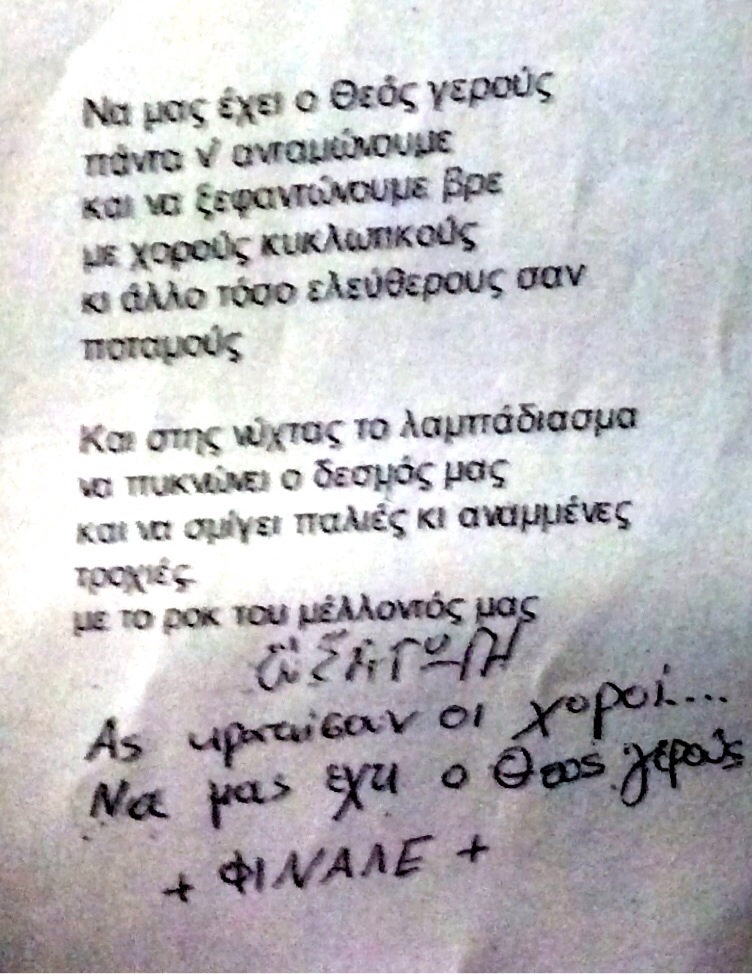 Να μας έχει ο Θεός γερούς
πάντα ν' ανταμώνουμε
και να ξεφαντώνουμε βρε
με χορούς κυκλωτικούς
κι άλλο τόσο ελεύθερους σαν
ποταμούς
Και στης νύχτας το λαμπάδιασμα
να πυκνώνει ο δεσμός μας
και να σμίγει παλιές κι αναμμένες
τροχιές
με το ροκ του μέλλοντός μας
ΕΙΣΑΓΩΓΗ
Ας κρατήσουν οι χοροί....
Να μας εχει ο Θεος γερούς
+ ΦΙΝΑΛΕ +